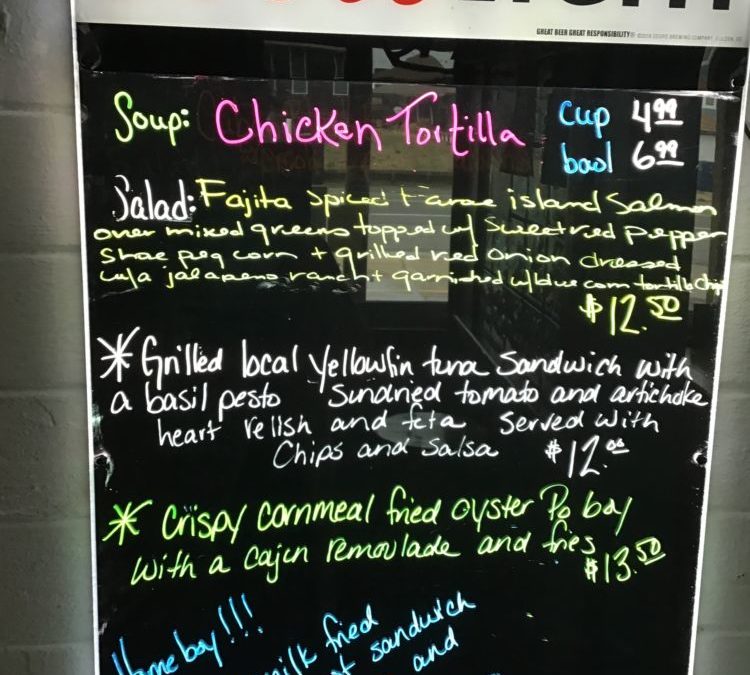 GREAT BEER GREAT RESPONSIBILITY®
Soup: Chicken Tortilla cup 4.99
bowl 6.99
Salad: Fajita Spiced Faroe island Salmon
over mixed greens topped w/ Sweet red pepper
Shoe peg corn + grilled red onion dressed
w/a jalapeno ranch + garnished w/blue corn tortilla chips
$12.50
* Grilled local Yellowfin tuna Sandwich with
a basil pesto Sundried tomato and artichoke
heart relish and feta Served with
Chips and Salsa $12.00
* Crispy cornmeal fried oyster Po boy
with a cajun remoulade and fries
$13.50
Homeboy!!!
milk fried
sandwich
and